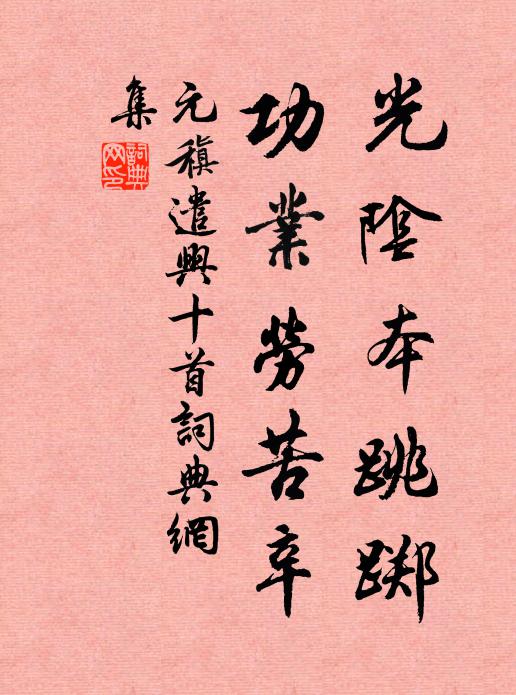 光陰本跳躑
功業勞苦辛
元稹遣興十首詞典網
集
詞典
网印